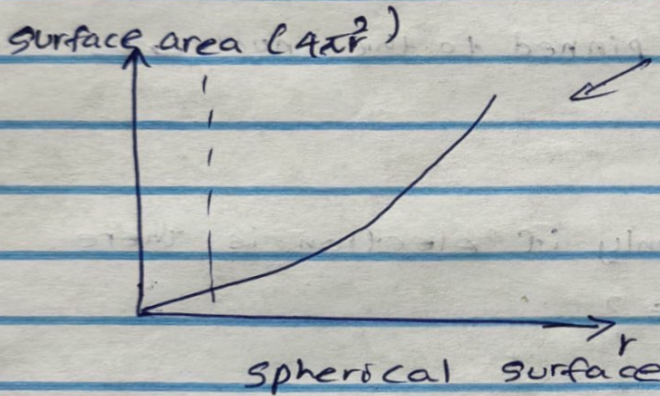 surface area (4πr²)
r
spherical surface